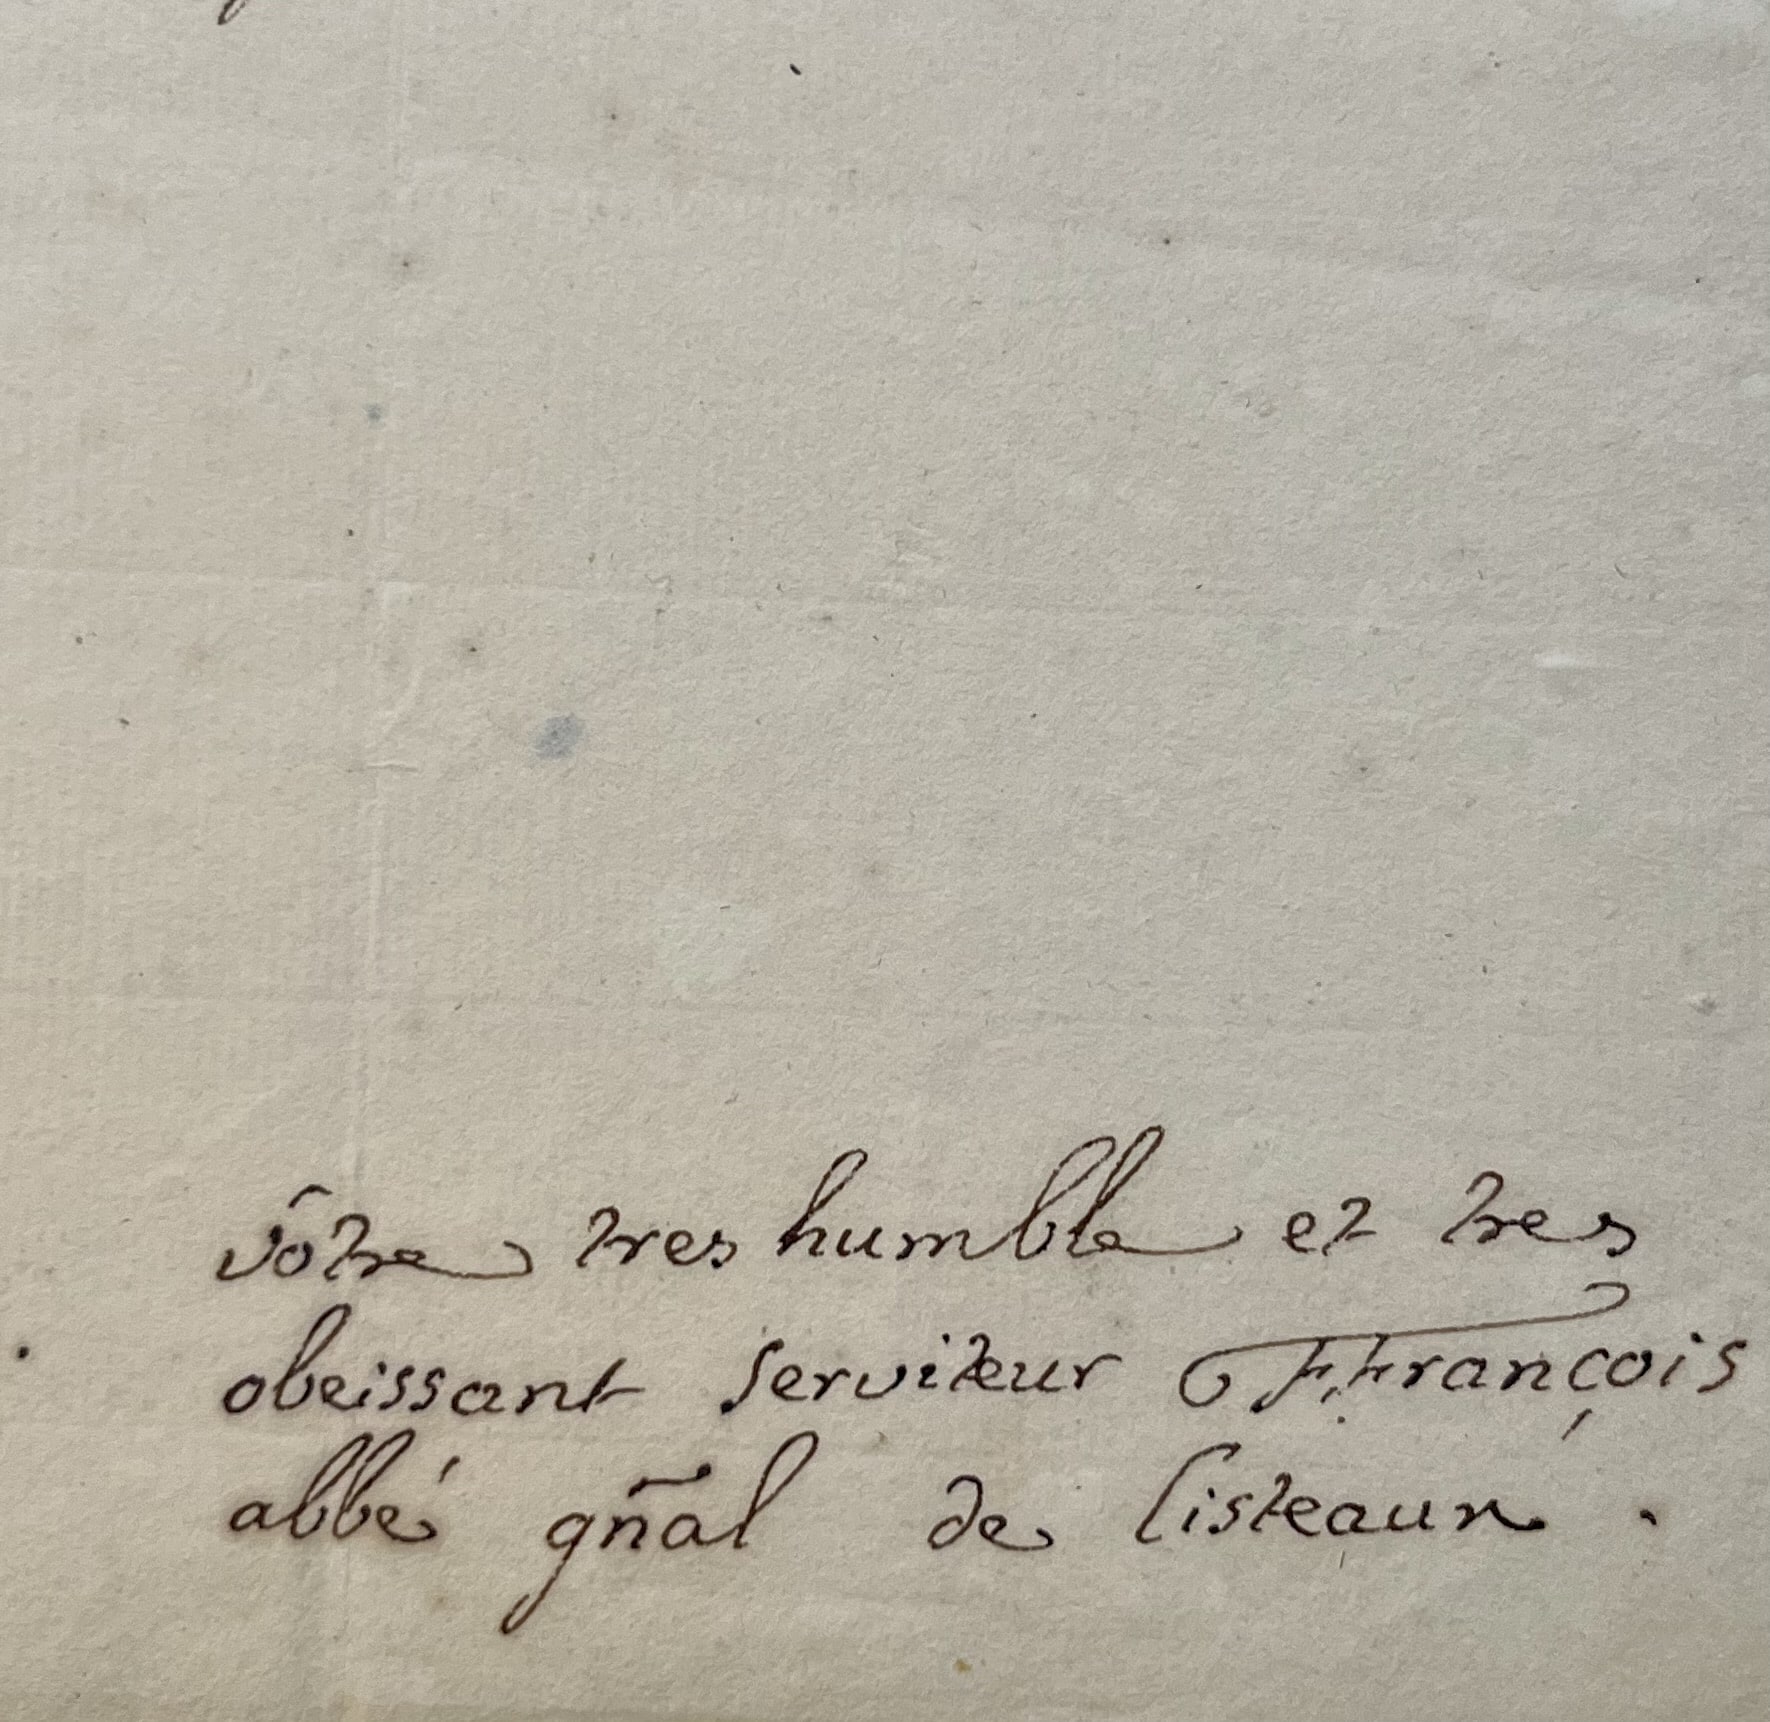 vôtre tres humble et tres
obeissant serviteur FFrançois
abbé gñal de Cisteaux .